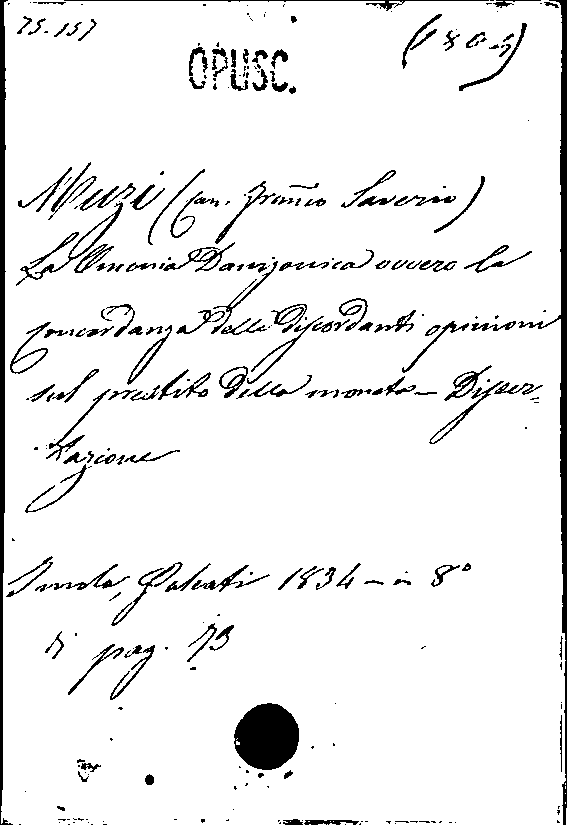 75.157
(180-5)
OPUSC.
Muzi (Can. Franco Saverio)
La Omonia Danizonica ovvero la
concordanza delle discordanti opinioni
sul prestito della moneta - Disser=
tazione
Imola, Galeati 1834 - in 8°
di pag. 73